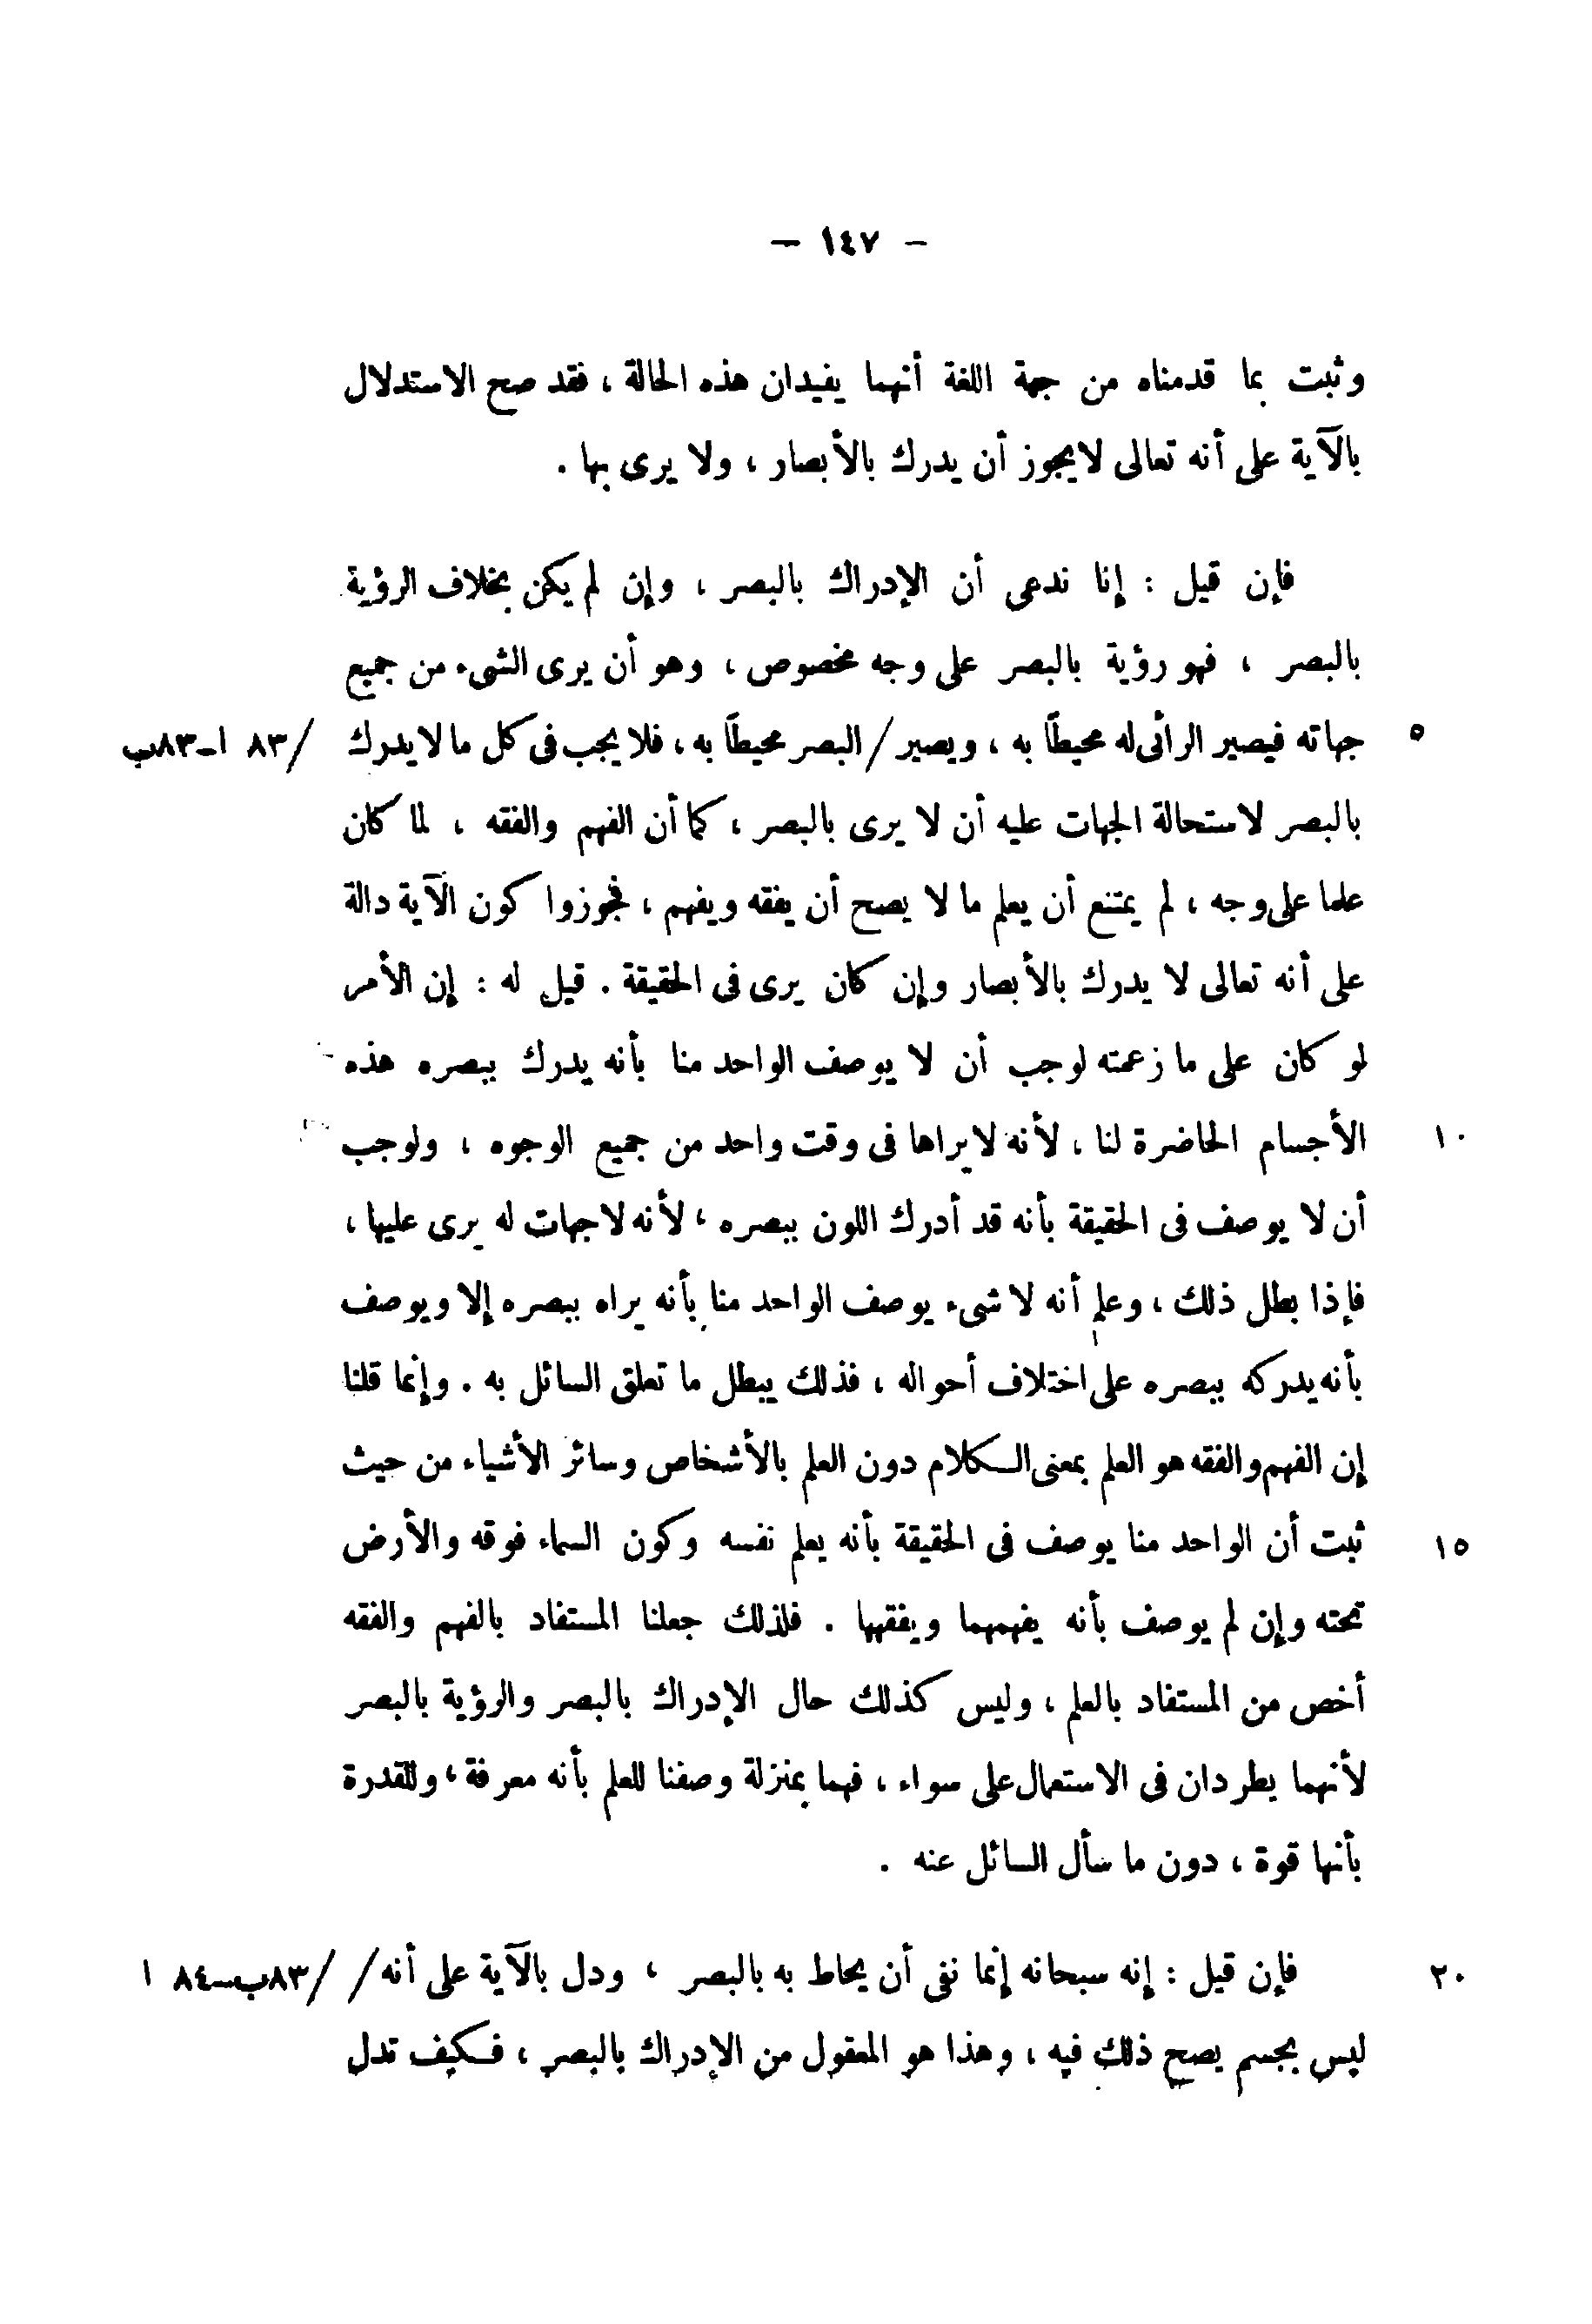 — ١٤٧ —
وثبت بما قدمناه من جهة اللغة أنهما يفيدان هذه الحالة ، فقد صح الاستدلال
بالآية على أنه تعالى لايجوز أن يدرك بالأبصار ، ولا يرى بها .
فإن قيل : إنا ندعى أن الإدراك بالبصر ، وإن لم يكن بخلاف الرؤية
بالبصر ، فهو رؤية بالبصر على وجه مخصوص ، وهو أن يرى الشىء من جميع
٥ جهاته فيصير الرائى له محيطًا به ، ويصير / البصر محيطًا به ، فلا يجب فى كل ما لا يدرك /٨٣ ا-٨٣ب
بالبصر لاستحالة الجهات عليه أن لا يرى بالبصر ، كما أن الفهم والفقه ، لما كان
علما على وجه ، لم يمتنع أن يعلم ما لا يصح أن يفقه ويفهم ، فجوزوا كون الآية دالة
على أنه تعالى لا يدرك بالأبصار وإن كان يرى فى الحقيقة . قيل له : إن الأمر
لو كان على ما زعمته لوجب أن لا يوصف الواحد منا بأنه يدرك ببصره هذه
١٠ الأجسام الحاضرة لنا ، لأنه لايراها فى وقت واحد من جميع الوجوه ، ولوجب
أن لا يوصف فى الحقيقة بأنه قد أدرك اللون ببصره ، لأنه لاجهات له يرى عليها ،
فإذا بطل ذلك ، وعلم أنه لا شىء يوصف الواحد منا بأنه يراه ببصره إلا ويوصف
بأنه يدركه ببصره على اختلاف أحواله ، فذلك يبطل ما تعلق السائل به . وإنما قلنا
إن الفهم والفقه هو العلم بمعنى الكلام دون العلم بالأشخاص وسائر الأشياء من حيث
١٥ ثبت أن الواحد منا يوصف فى الحقيقة بأنه يعلم نفسه وكون السماء فوقه والأرض
تحته وإن لم يوصف بأنه يفهمهما ويفقهها . فلذلك جعلنا المستفاد بالفهم والفقه
أخص من المستفاد بالعلم ، وليس كذلك حال الإدراك بالبصر والرؤية بالبصر
لأنهما يطردان فى الاستعمال على سواء ، فهما بمنزلة وصفنا للعلم بأنه معرفة ، وللقدرة
بأنها قوة ، دون ما سأل السائل عنه .
٢٠ فإن قيل : إنه سبحانه إنما نفى أن يحاط به بالبصر ، ودل بالآية على أنه / /٨٣ب-٨٤ ا
ليس بجسم يصح ذلك فيه ، وهذا هو المعقول من الإدراك بالبصر ، فكيف تدل